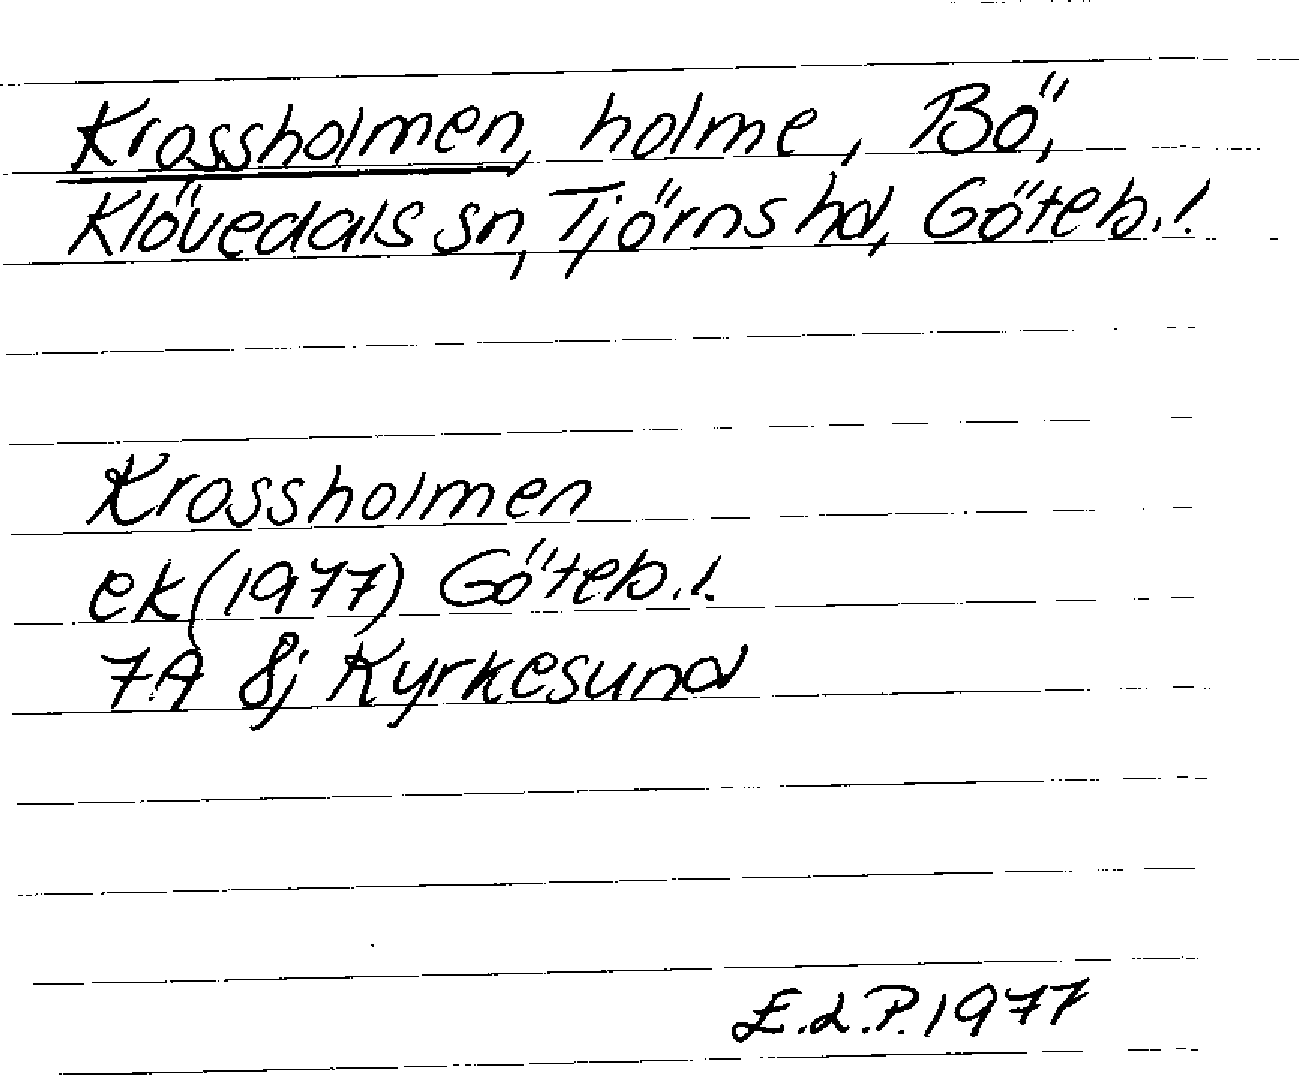 Krossholmen, holme, Bö,
Klövedals sn, Tjörns hd, Göteb.l.
Krossholmen
ek (1977) Göteb.l.
7A 8j Kyrkesund
E.L.P. 1977